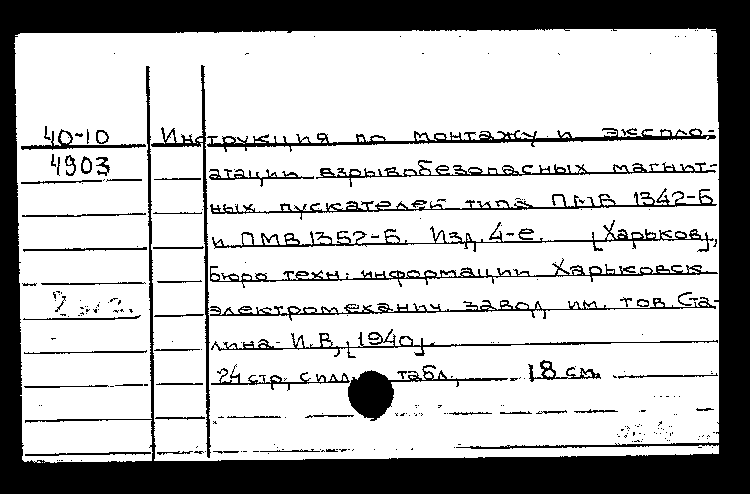 40-10 Инструкция по монтажу и экспло-
4903 атации взрывобезопасных магнит-
ных пускателей типа ПМВ 1342-Б
и ПМВ 1352-Б. Изд. 4-е. [Харьков],
бюро техн. информации Харьковск.
2 экз. электромеханич. завод им. тов. Ста-
лина И.В, [1940].
24 стр, с илл. табл., 18 см.